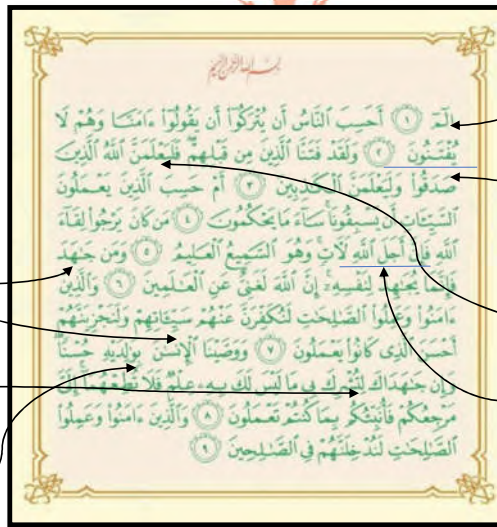 بسم الله الرحمن الرحيم
الٓمٓ ١ أَحَسِبَ النَّاسُ أَن يُتْرَكُوٓا۟ أَن يَقُولُوٓا۟ ءَامَنَّا وَهُمْ لَا
يُفْتَنُونَ ٢ وَلَقَدْ فَتَنَّا الَّذِينَ مِن قَبْلِهِمْ فَلَيَعْلَمَنَّ اللَّهُ الَّذِينَ
صَدَقُوا۟ وَلَيَعْلَمَنَّ الْكَٰذِبِينَ ٣ أَمْ حَسِبَ الَّذِينَ يَعْمَلُونَ
السَّيِّـَٔاتِ أَن يَسْبِقُونَا سَآءَ مَا يَحْكُمُونَ ٤ مَن كَانَ يَرْجُوا۟ لِقَآءَ
اللَّهِ فَإِنَّ أَجَلَ اللَّهِ لَـَٔاتٍ وَهُوَ السَّمِيعُ الْعَلِيمُ ٥ وَمَن جَٰهَدَ
فَإِنَّمَا يُجَٰهِدُ لِنَفْسِهِۦٓ إِنَّ اللَّهَ لَغَنِىٌّ عَنِ الْعَٰلَمِينَ ٦ وَالَّذِينَ
ءَامَنُوا۟ وَعَمِلُوا۟ الصَّٰلِحَٰتِ لَنُكَفِّرَنَّ عَنْهُمْ سَيِّـَٔاتِهِمْ وَلَنَجْزِيَنَّهُمْ
أَحْسَنَ الَّذِى كَانُوا۟ يَعْمَلُونَ ٧ وَوَصَّيْنَا الْإِنسَٰنَ بِوَٰلِدَيْهِ حُسْنًا
وَإِن جَٰهَدَاكَ لِتُشْرِكَ بِى مَا لَيْسَ لَكَ بِهِۦ عِلْمٌ فَلَا تُطِعْهُمَآ إِلَىَّ
مَرْجِعُكُمْ فَأُنَبِّئُكُم بِمَا كُنتُمْ تَعْمَلُونَ ٨ وَالَّذِينَ ءَامَنُوا۟ وَعَمِلُوا۟
الصَّٰلِحَٰتِ لَنُدْخِلَنَّهُمْ فِى الصَّٰلِحِينَ ٩